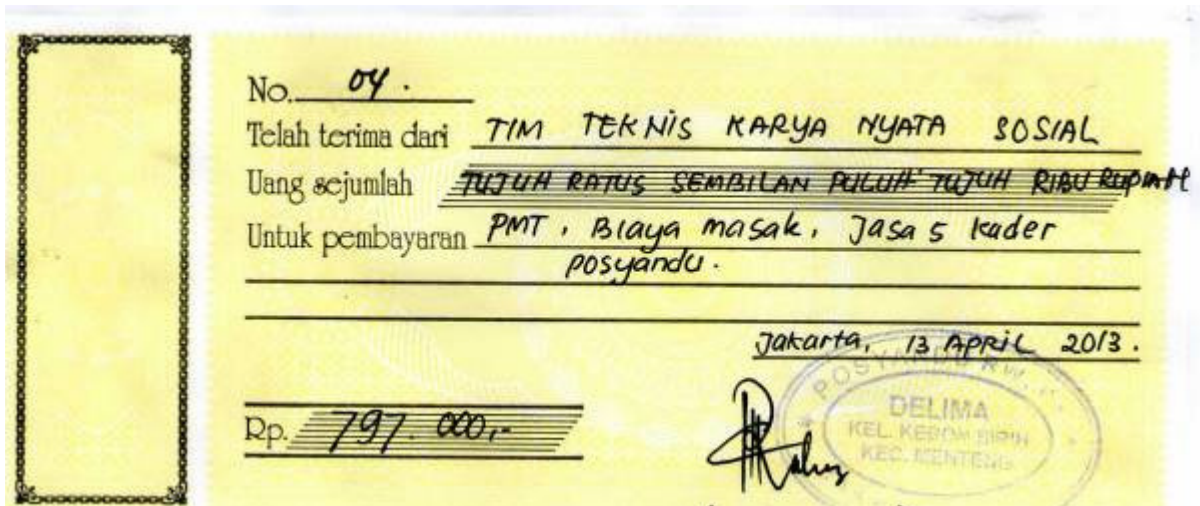 No. 04.
Telah terima dari TIM TEKNIS KARYA NYATA SOSIAL
Uang sejumlah TUJUH RATUS SEMBILAN PULUH TUJUH RIBU RUPIAH
Untuk pembayaran PMT, Biaya masak, Jasa 5 kader
posyandu.
Jakarta, 13 APRIL 2013.
POSYANDU RW
DELIMA
KEL. KEBON SIRIH
KEC. MENTENG
Rp. 797.000,-